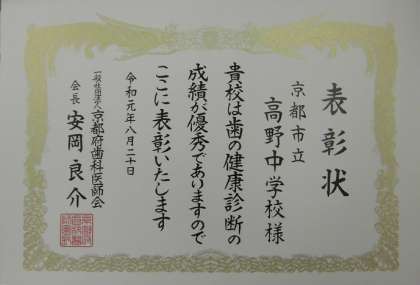 表彰状
京都市立
高野中学校様
貴校は歯の健康診断の
成績が優秀でありますので
ここに表彰いたします
令和元年八月二十日
一般社団法人京都府歯科医師会
会長 安岡良介